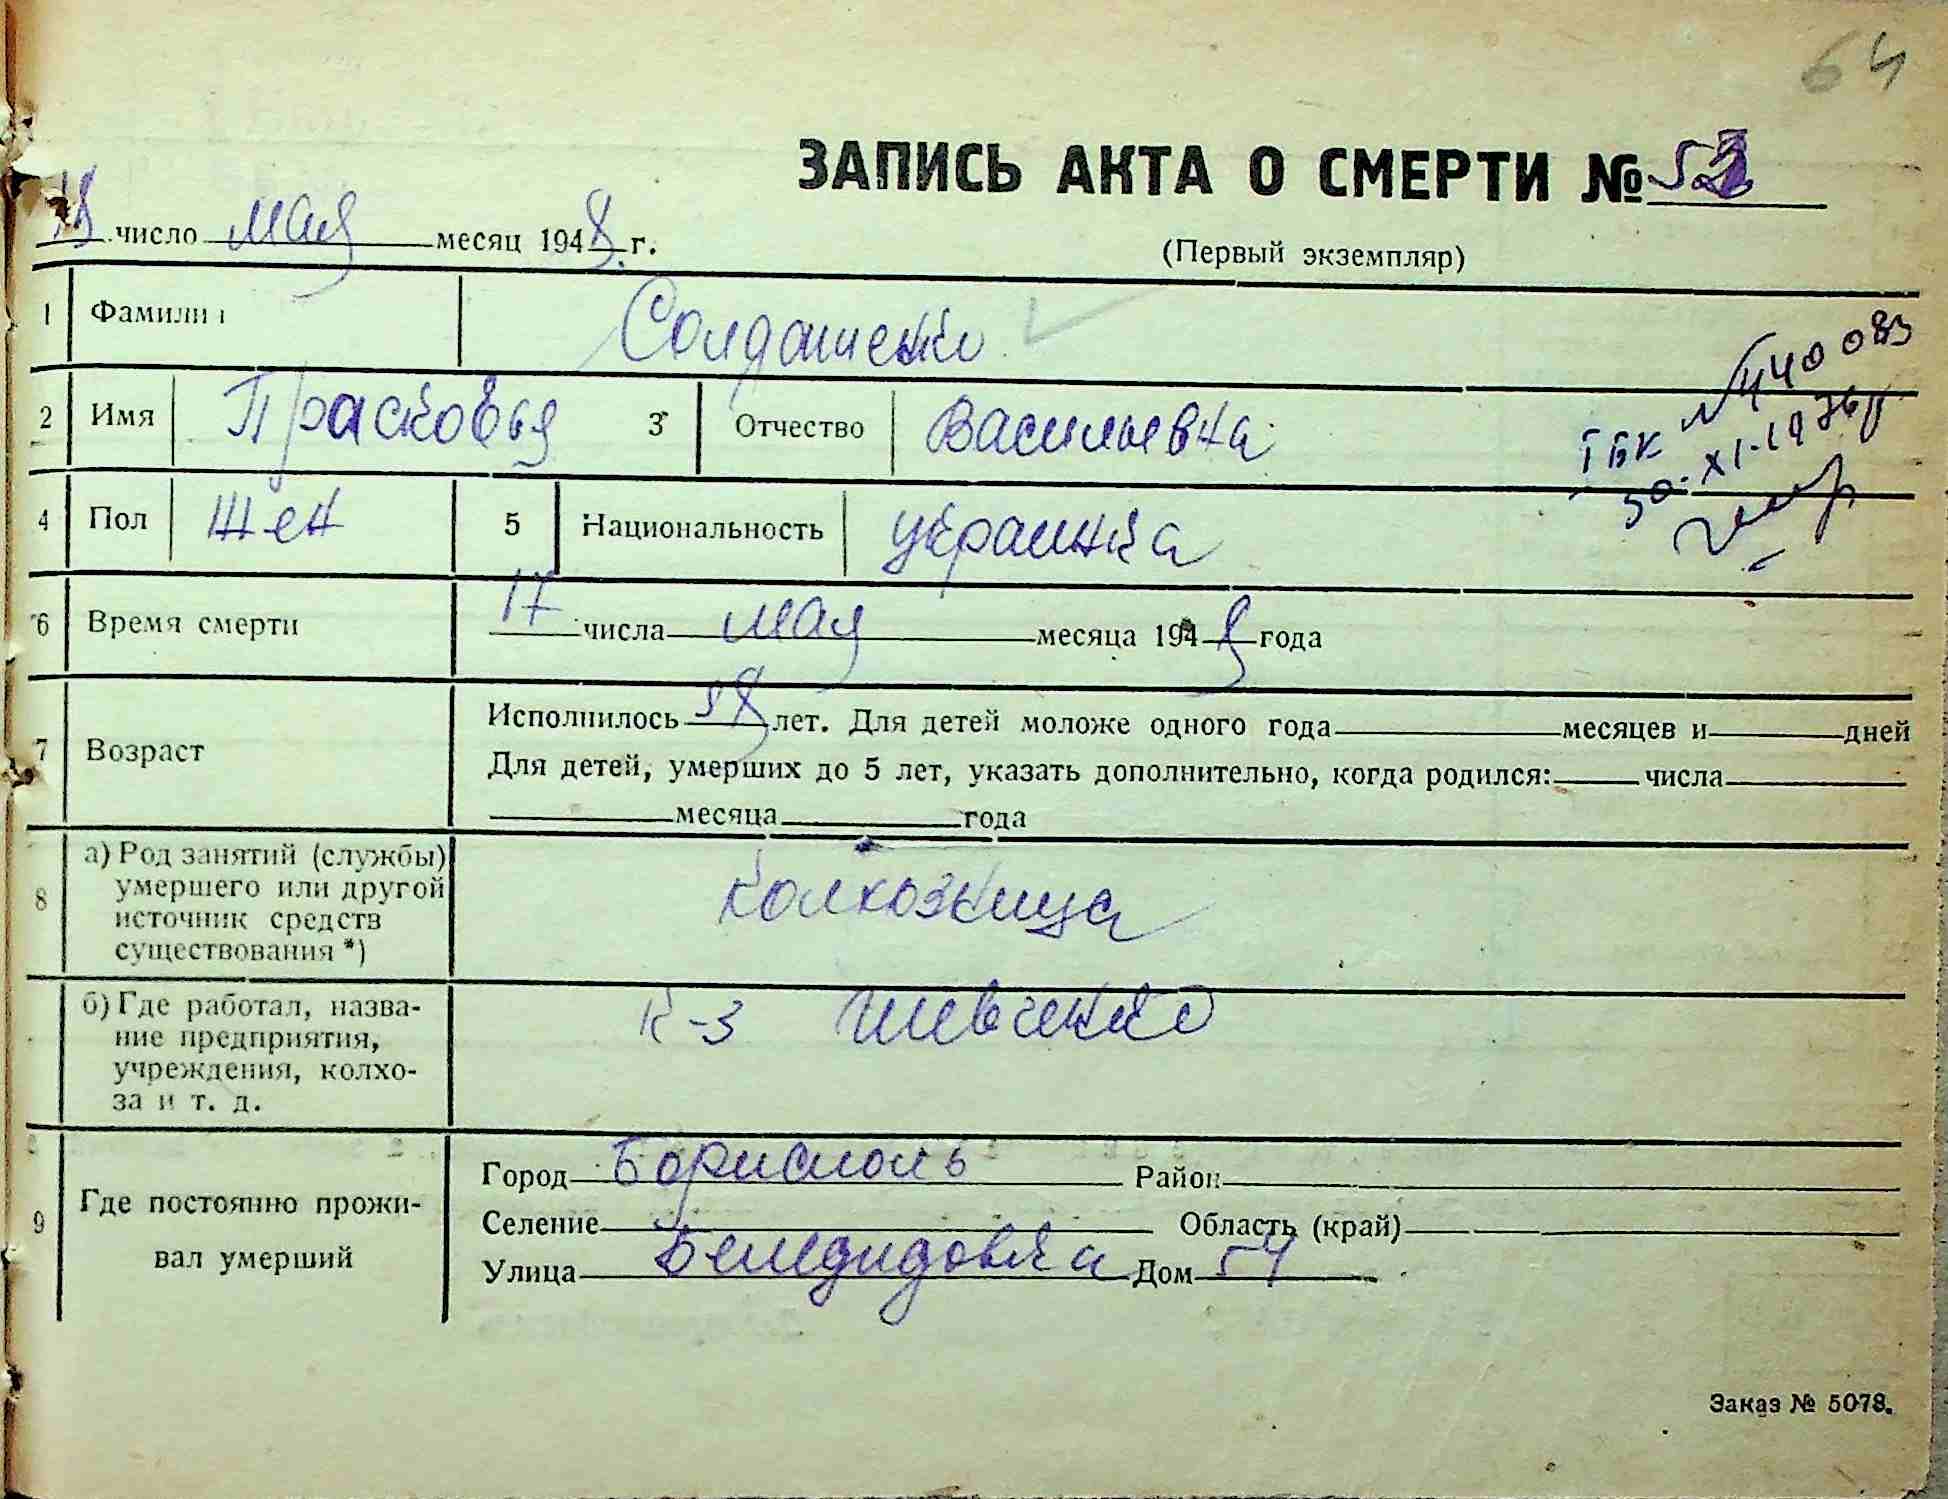 64
ЗАПИСЬ АКТА О СМЕРТИ № 52
18 число мая месяц 1948 г.
(Первый экземпляр)
1 Фамилия Солдатенко
2 Имя Прасковья 3 Отчество Васильевна
4 Пол жен 5 Национальность украинка
ІБК № 440083
30-XI-1976г
6 Время смерти 17 числа мая месяца 1948 года
7 Возраст Исполнилось 58 лет. Для детей моложе одного года месяцев и дней
Для детей, умерших до 5 лет, указать дополнительно, когда родился: числа
месяца года
8 а) Род занятий (службы) умершего или другой источник средств существования *) Колхозница
б) Где работал, название предприятия, учреждения, колхоза и т. д. К-з Шевченко
9 Где постоянно проживал умерший
Город Борисполь Район
Селение Область (край)
Улица Дом 54
Заказ № 5078.